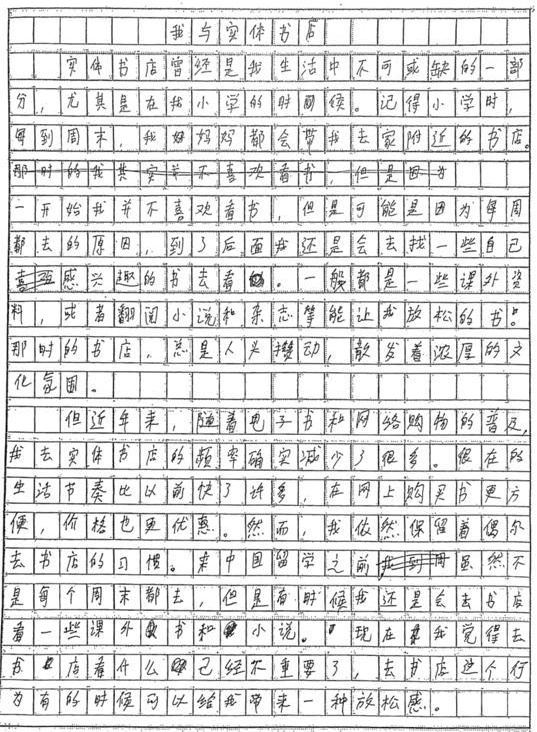 我与实体书店
实体书店曾经是我生活中不可或缺的一部
分，尤其是在我小学的时间候。记得小学时，
每到周末，我妈妈都会带我去家附近的书店。
那时的我其实并不喜欢看书，但是因为
一开始我并不喜欢看书，但是可能是因为每周
都去的原因，到了后面我还是会去找一些自己
喜 感兴趣的书去看。一般都是一些课外资
料，或者翻阅小说和杂志等能让我放松的书。
那时的书店，总是人头攒动，散发着浓厚的文
化氛围。
但近年来，随着电子书和网络购物的普及，
我去实体书店的频率确实减少了很多。很在的
生活节奏比以前快了许多，在网上购买书更方
便，价格也更优惠。然而，我依然保留着偶尔
去书店的习惯。来中国留学之前我到周虽然不
是每个周末都去，但是有时候我还是会去书店
看一些课外书和小说。现在我觉得去
书店看什么已经不重要了，去书店这个行
为有的时候可以给我带来一种放松感。